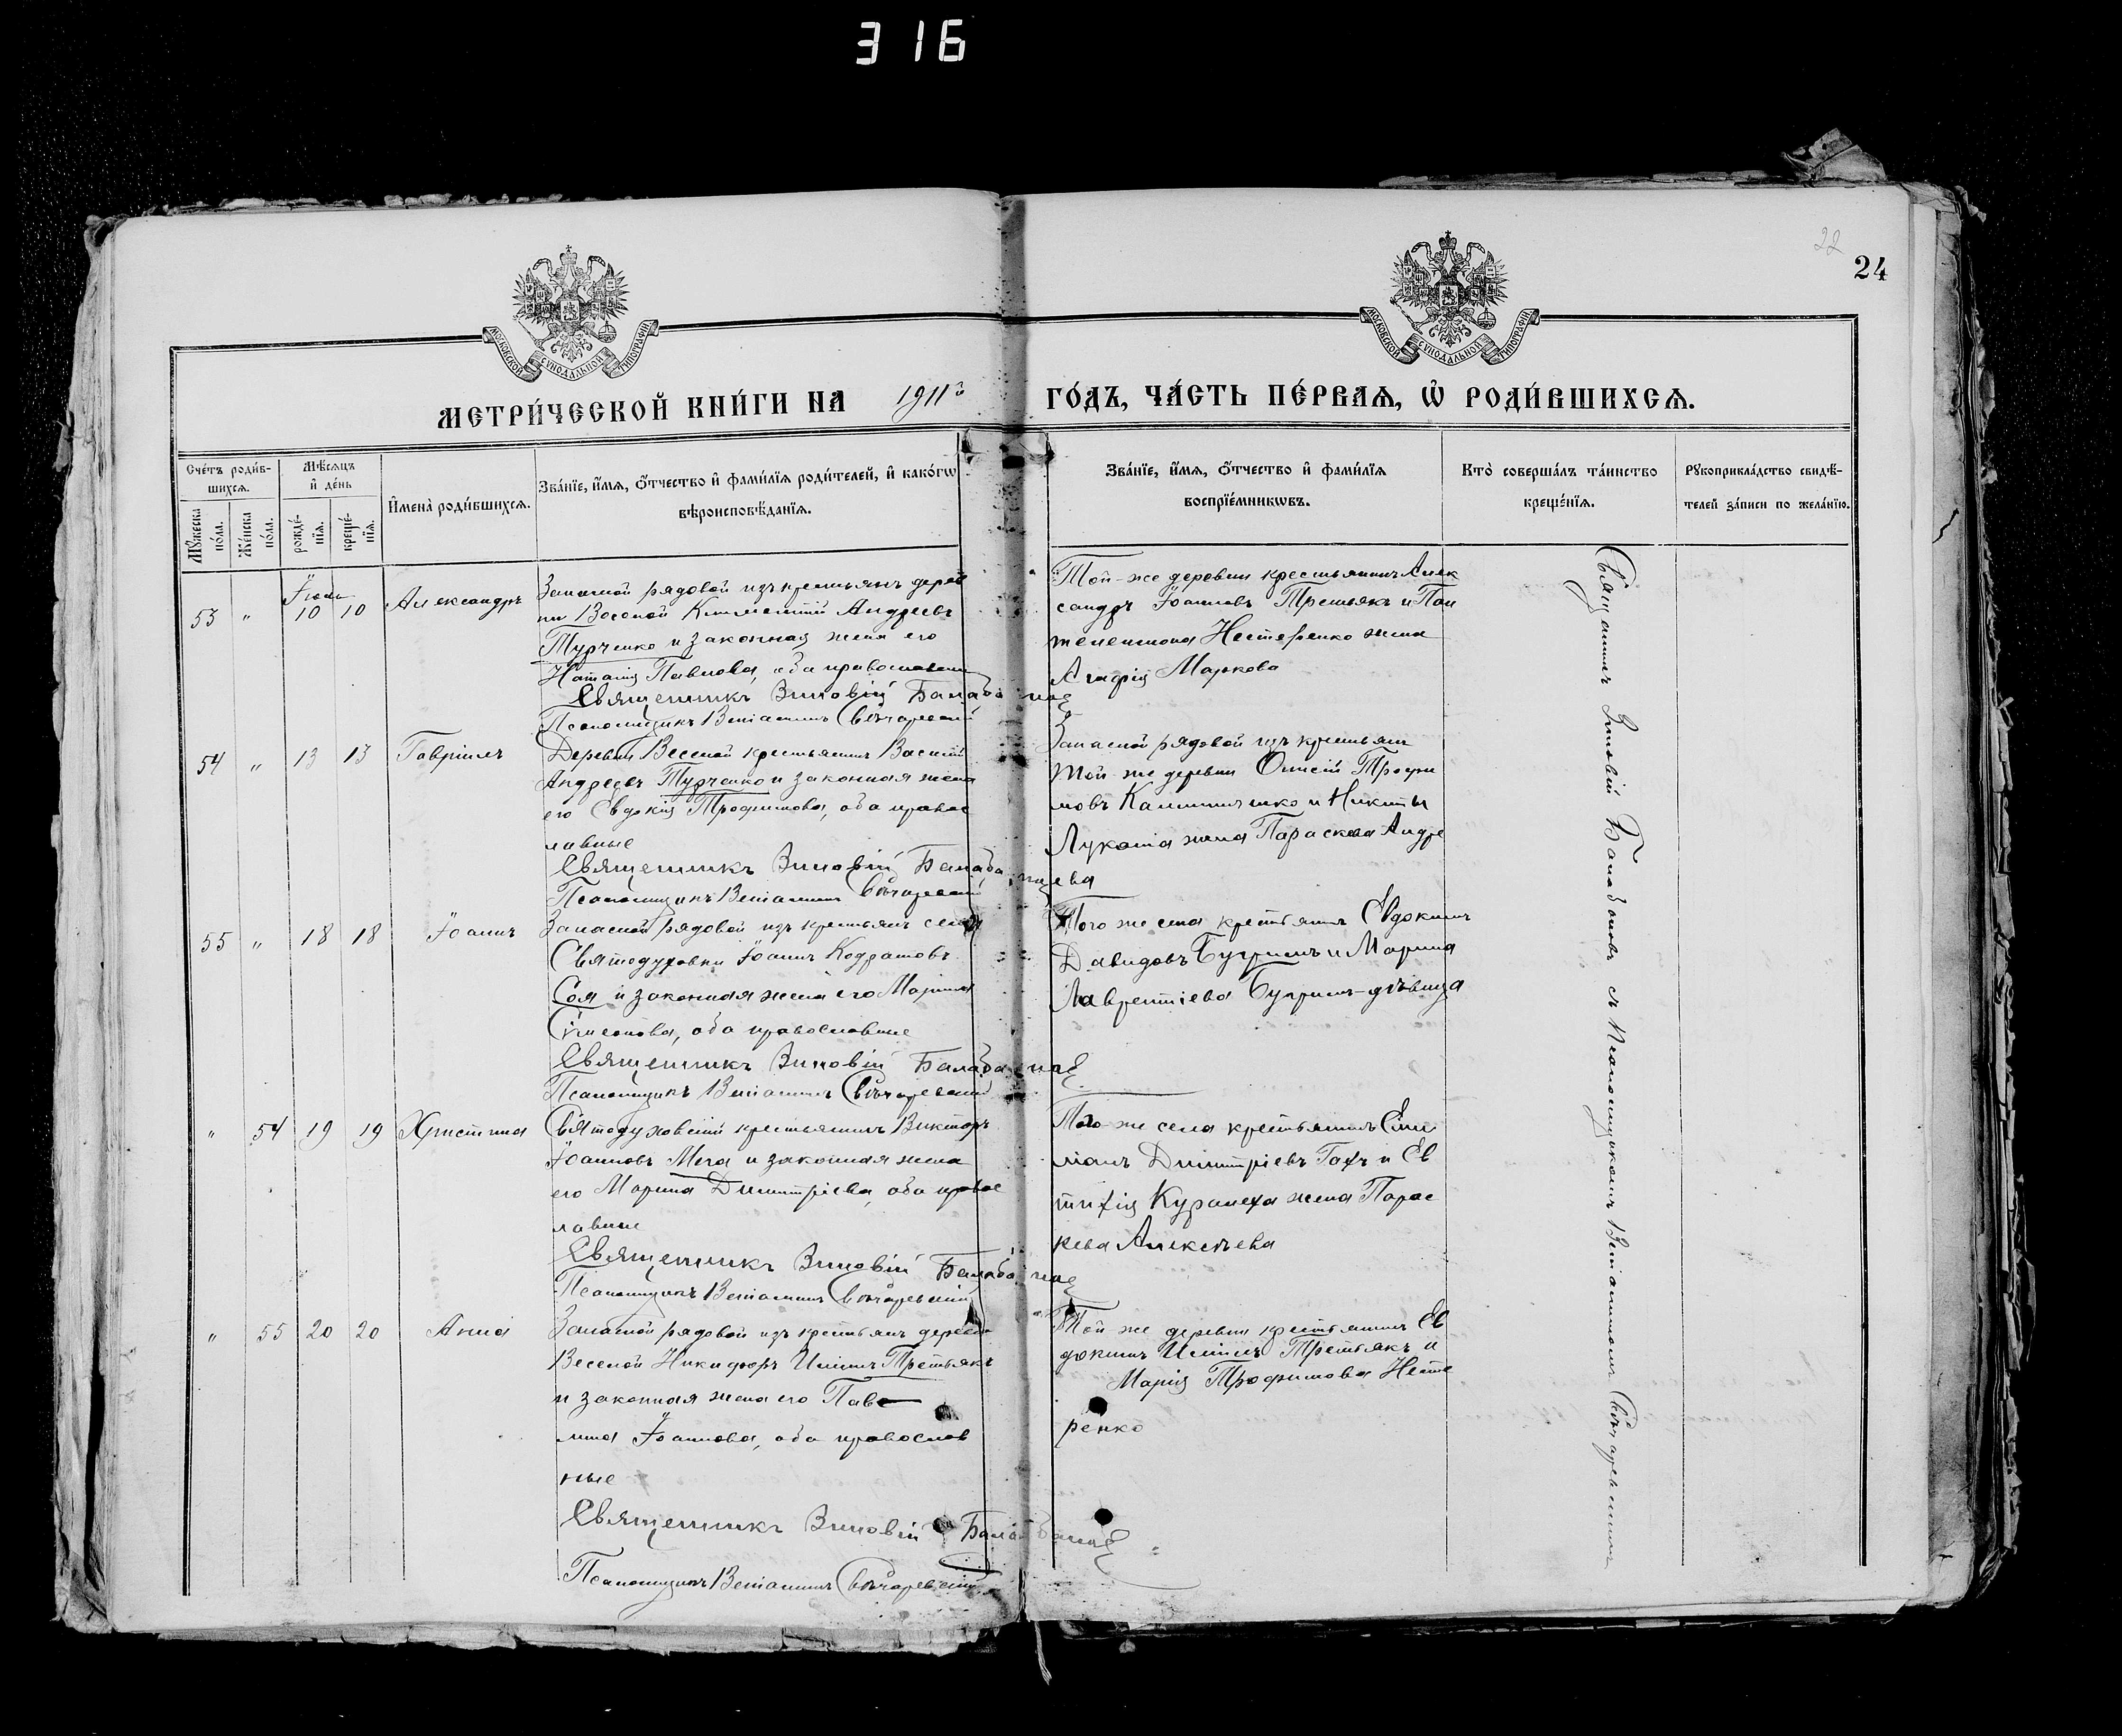 316
22
24
МОСКОВСКОЙ СУНОДАЛЬНОЙ ТИПОГРАФІИ
МОСКОВСКОЙ СУНОДАЛЬНОЙ ТИПОГРАФІИ
МЕТРИ́ЧЕСКОЙ КНИ́ГИ НА 1911й ГО́ДЪ, ЧА́СТЬ ПЕ́РВАѦ, Ѡ҆ РОДИ́ВШИХСѦ.
Сче́тъ роди́в-
шихсѧ.
Мꙋ́жеска по́ла.
Же́нска по́ла.
Мѣ́сѧцъ
и҆ де́нь
рожде́-
нїѧ.
креще́-
нїѧ.
И҆мена̀ роди́вшихсѧ.
Зва́нїе, и҆́мѧ, ѻ҆́тчество и҆ фами́лїѧ роди́телей, и҆ како́гѡ
вѣроисповѣ́данїѧ.
Зва́нїе, и҆́мѧ, ѻ҆́тчество и҆ фами́лїѧ
воспрїе́мникѡвъ.
Кто̀ соверша́лъ та́инство
креще́нїѧ.
Рꙋкоприкла́дство свидѣ́-
телей за́писи по жела́нїю.
53 " Іюля 10 10 Александръ
Запасной рядовой изъ крестьянъ дерев
ни Веселой Климентій Андреевъ
Турченко и законная жена его
Наталія Павлова, оба православные
Священникъ Зиновій Балабановъ
Псаломщикъ Веніаминъ
Той-же деревни крестьянинъ Алек
сандръ Іоанновъ Третьякъ и Пан
телеимона Нестеренко жена
Агафія Маркова
54 " 13 13 Гавріилъ
Деревни Веселой крестьянинъ Василій
Андреевъ Турченко и законная жена
его Евдокія Трофимова, оба правос
лавные
Священникъ Зиновій Балабановъ
Псаломщикъ Веніаминъ
Запасной рядовой изъ крестьянъ
той-же деревни Трофи
мовъ и Никиты
жена Параскева Андре
ева
55 " 18 18 Іоаннъ
Запасной рядовой изъ крестьянъ села
Святодуховки Іоаннъ Кодратовъ
Соя и законная жена его Марина
Симеонова, оба православные
Священникъ Зиновій Балабановъ
Псаломщикъ Веніаминъ
Того же села крестьянинъ Евдокимъ
Давидовъ Бугримъ и Марина
Лаврентіева Бугримъ-дѣвица
" 54 19 19 Христина
Святодуховскій крестьянинъ Викторъ
Іоанновъ Мега и законная жена
его Марина Димитріева, оба правос
лавные
Священникъ Зиновій Балабановъ
Псаломщикъ Веніаминъ
Того-же села крестьянинъ Еми
ліанъ Димитріевъ и Ев
тихія жена Парас
кева Алексѣева
" 55 20 20 Анна
Запасной рядовой изъ крестьянъ деревни
Веселой Никифоръ Третьякъ
и законная жена его Пав
лина Іоаннова, оба православ
ные
Священникъ Зиновій Балабановъ
Псаломщикъ Веніаминъ
Той же деревни крестьянинъ Ев
докимъ Третьякъ и
Марія Трофимова Несте
ренко
Священникъ Зиновій Балабановъ съ Псаломщикомъ Веніаминомъ